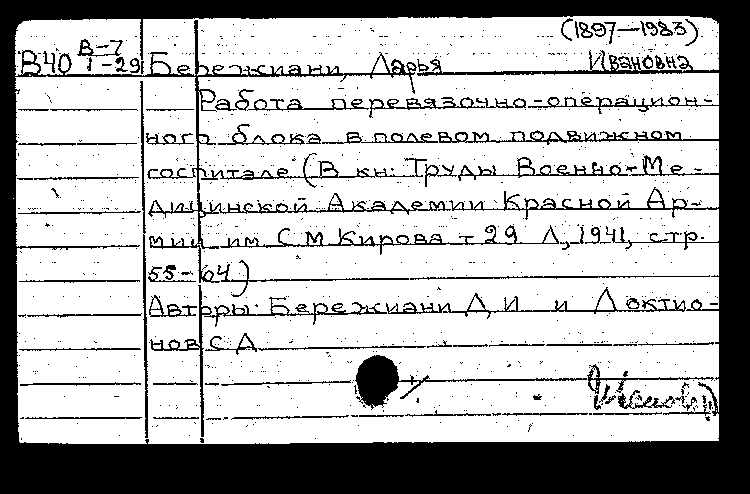 (1897—1983)
В40 В-7/1-29 Бережиани, Дарья Ивановна
Работа перевязочно-операцион-
ного блока в полевом подвижном
госпитале (В кн: Труды Военно-Ме-
дицинской Академии Красной Ар-
мии им С М Кирова т 29 Л, 1941, стр.
55-64)
Авторы: Бережиани Д И и Локтио-
нов С Д